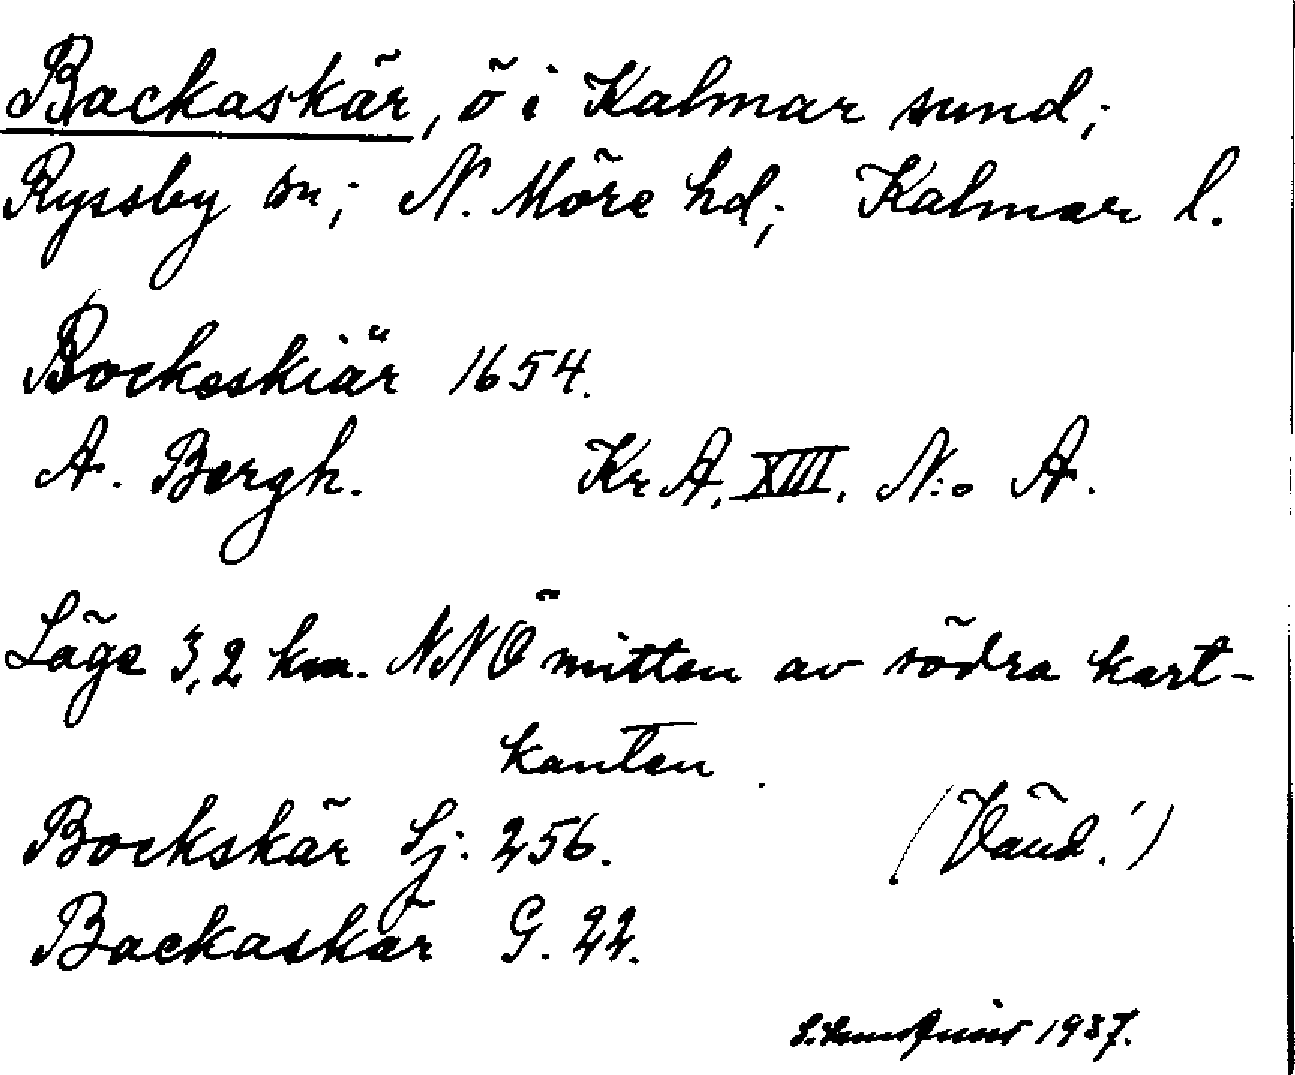 Backaskär, ö i Kalmar sund;
Ryssby sn; N. Möre hd; Kalmar l.
Bockeskiär 1654.
A. Bergh. Kr A, XIII. N:o A.
Läge 3,2 km. NNÖ mitten av södra kart-
kanten.
Bockskär Sj. 256. (Vänd!)
Backaskär G. 22.
1937.